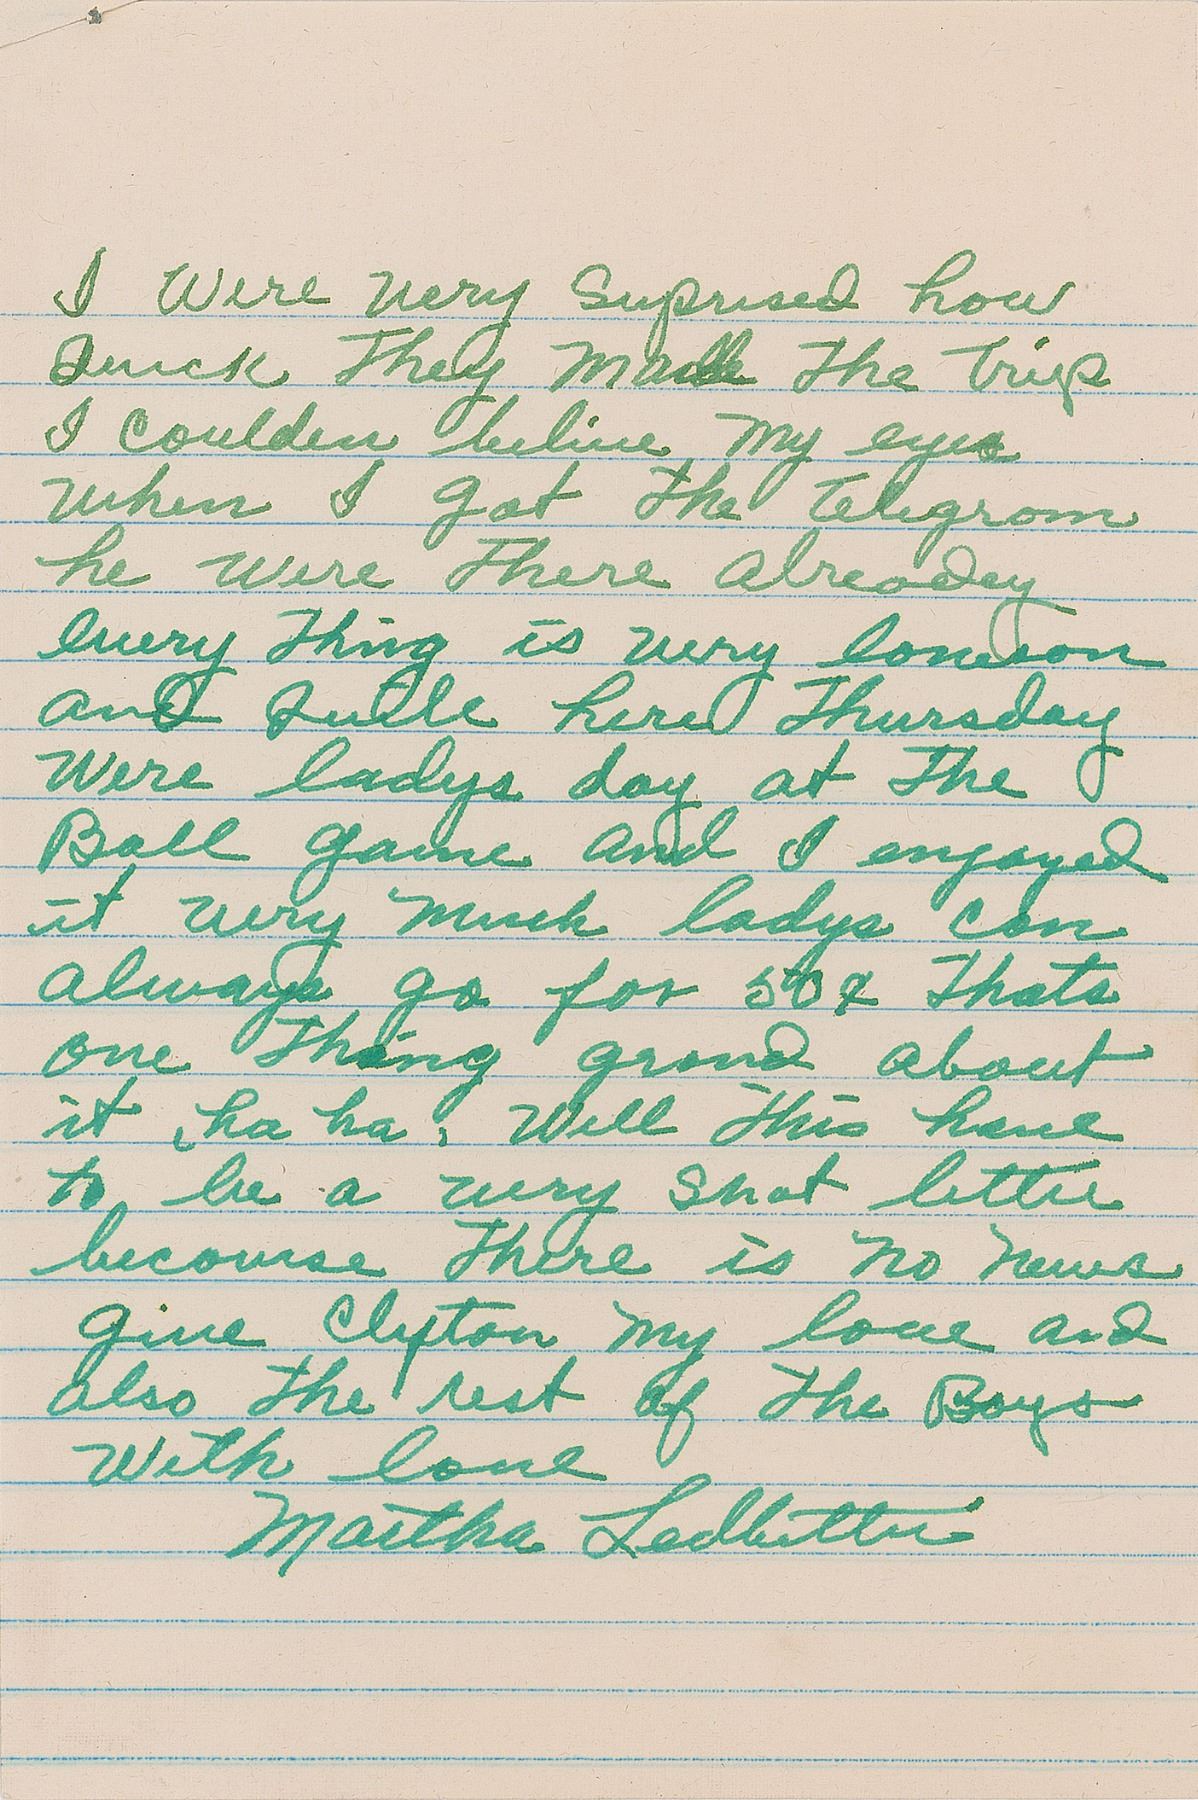 I Were very Suprised how
Quick They Made The Trip
I coulden belive My eyes
when I got The Telegrom
he were There alreadey
every Thing is very loneson
and Quite here Thursday
Were ladys day at The
Ball game and I enjoyed
it very Much ladys can
always go for 50¢ Thats
one Thing grand about
it , ha ha , Well This have
to be a very Shot letter
becouse There is No News
give Clyton My love and
also The rest of The Boys
With love
Martha Ledbetter